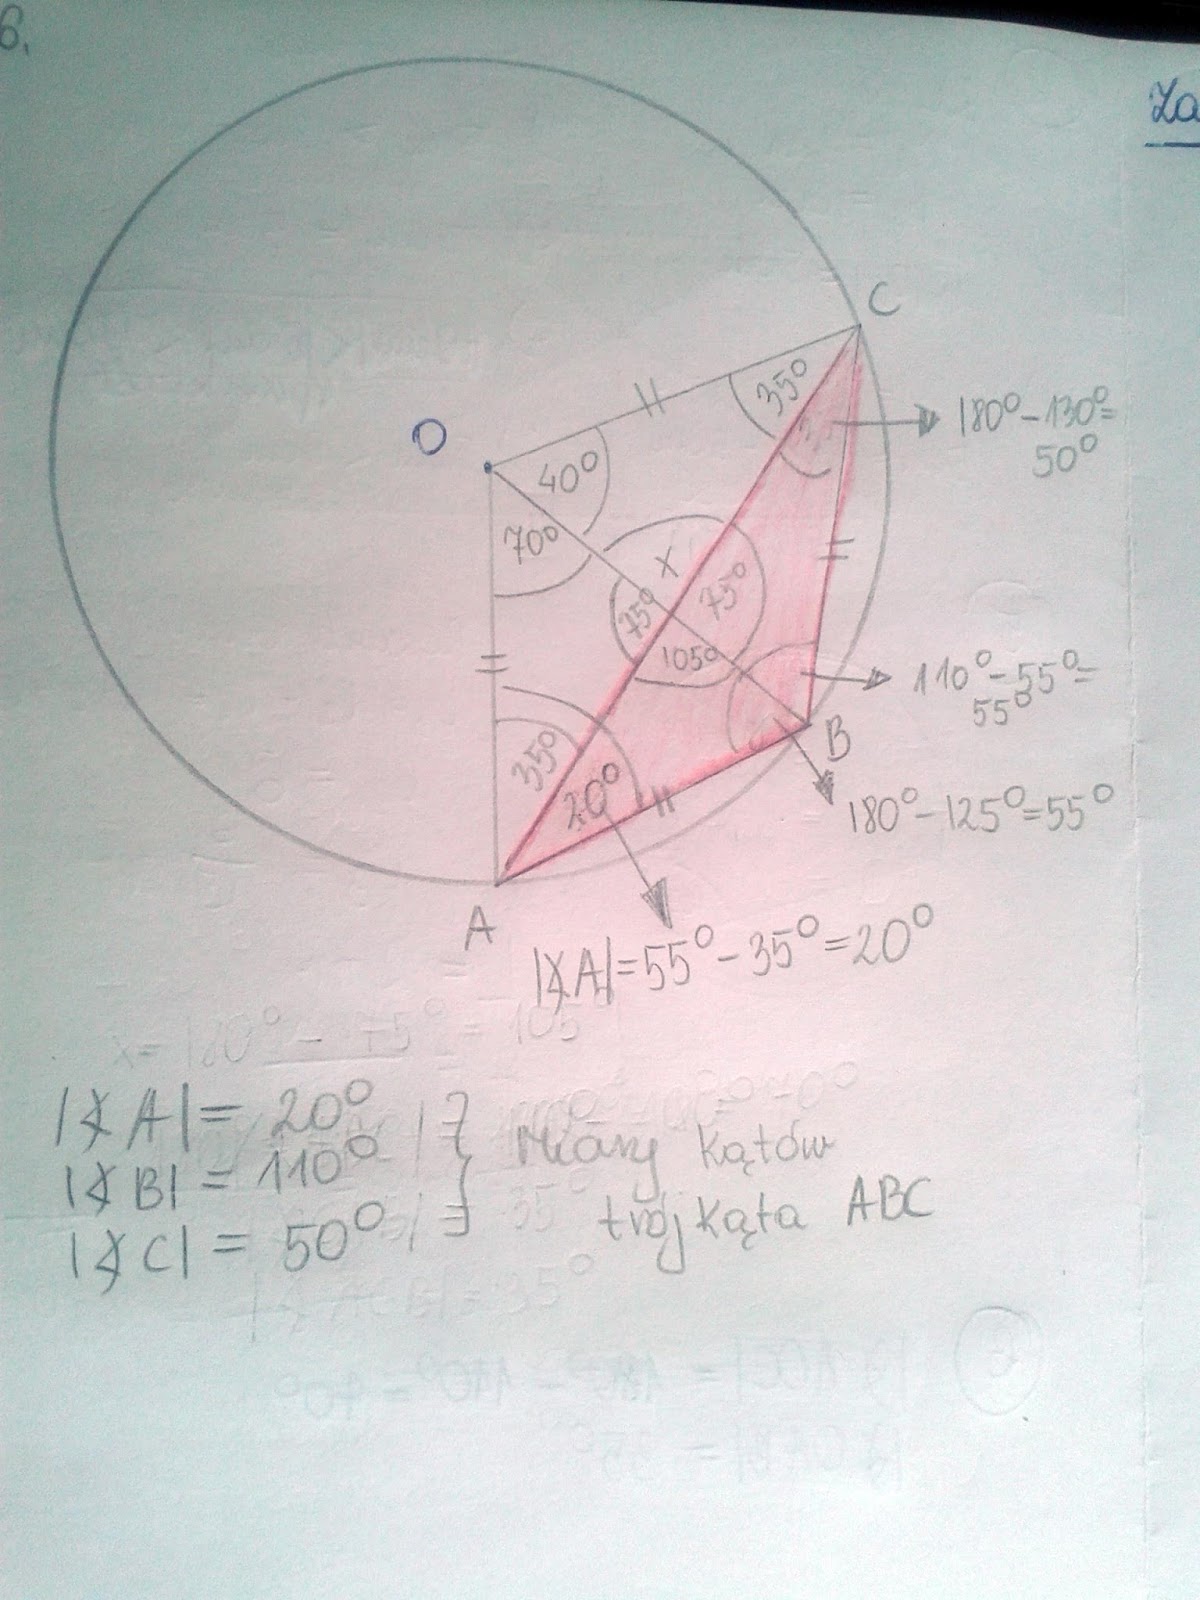 6.
Za
C
O
35°
180°-130°=
50°
40°
70°
x
75°
75°
105°
110°-55°=
55°
B
35°
20°
180°-125°=55°
A
|∢A|=55°-35°=20°
x=180°-75°=105°
|∢A|= 20°
|∢B| = 110° } miary kątów
|∢C| = 50° } trójkąta ABC